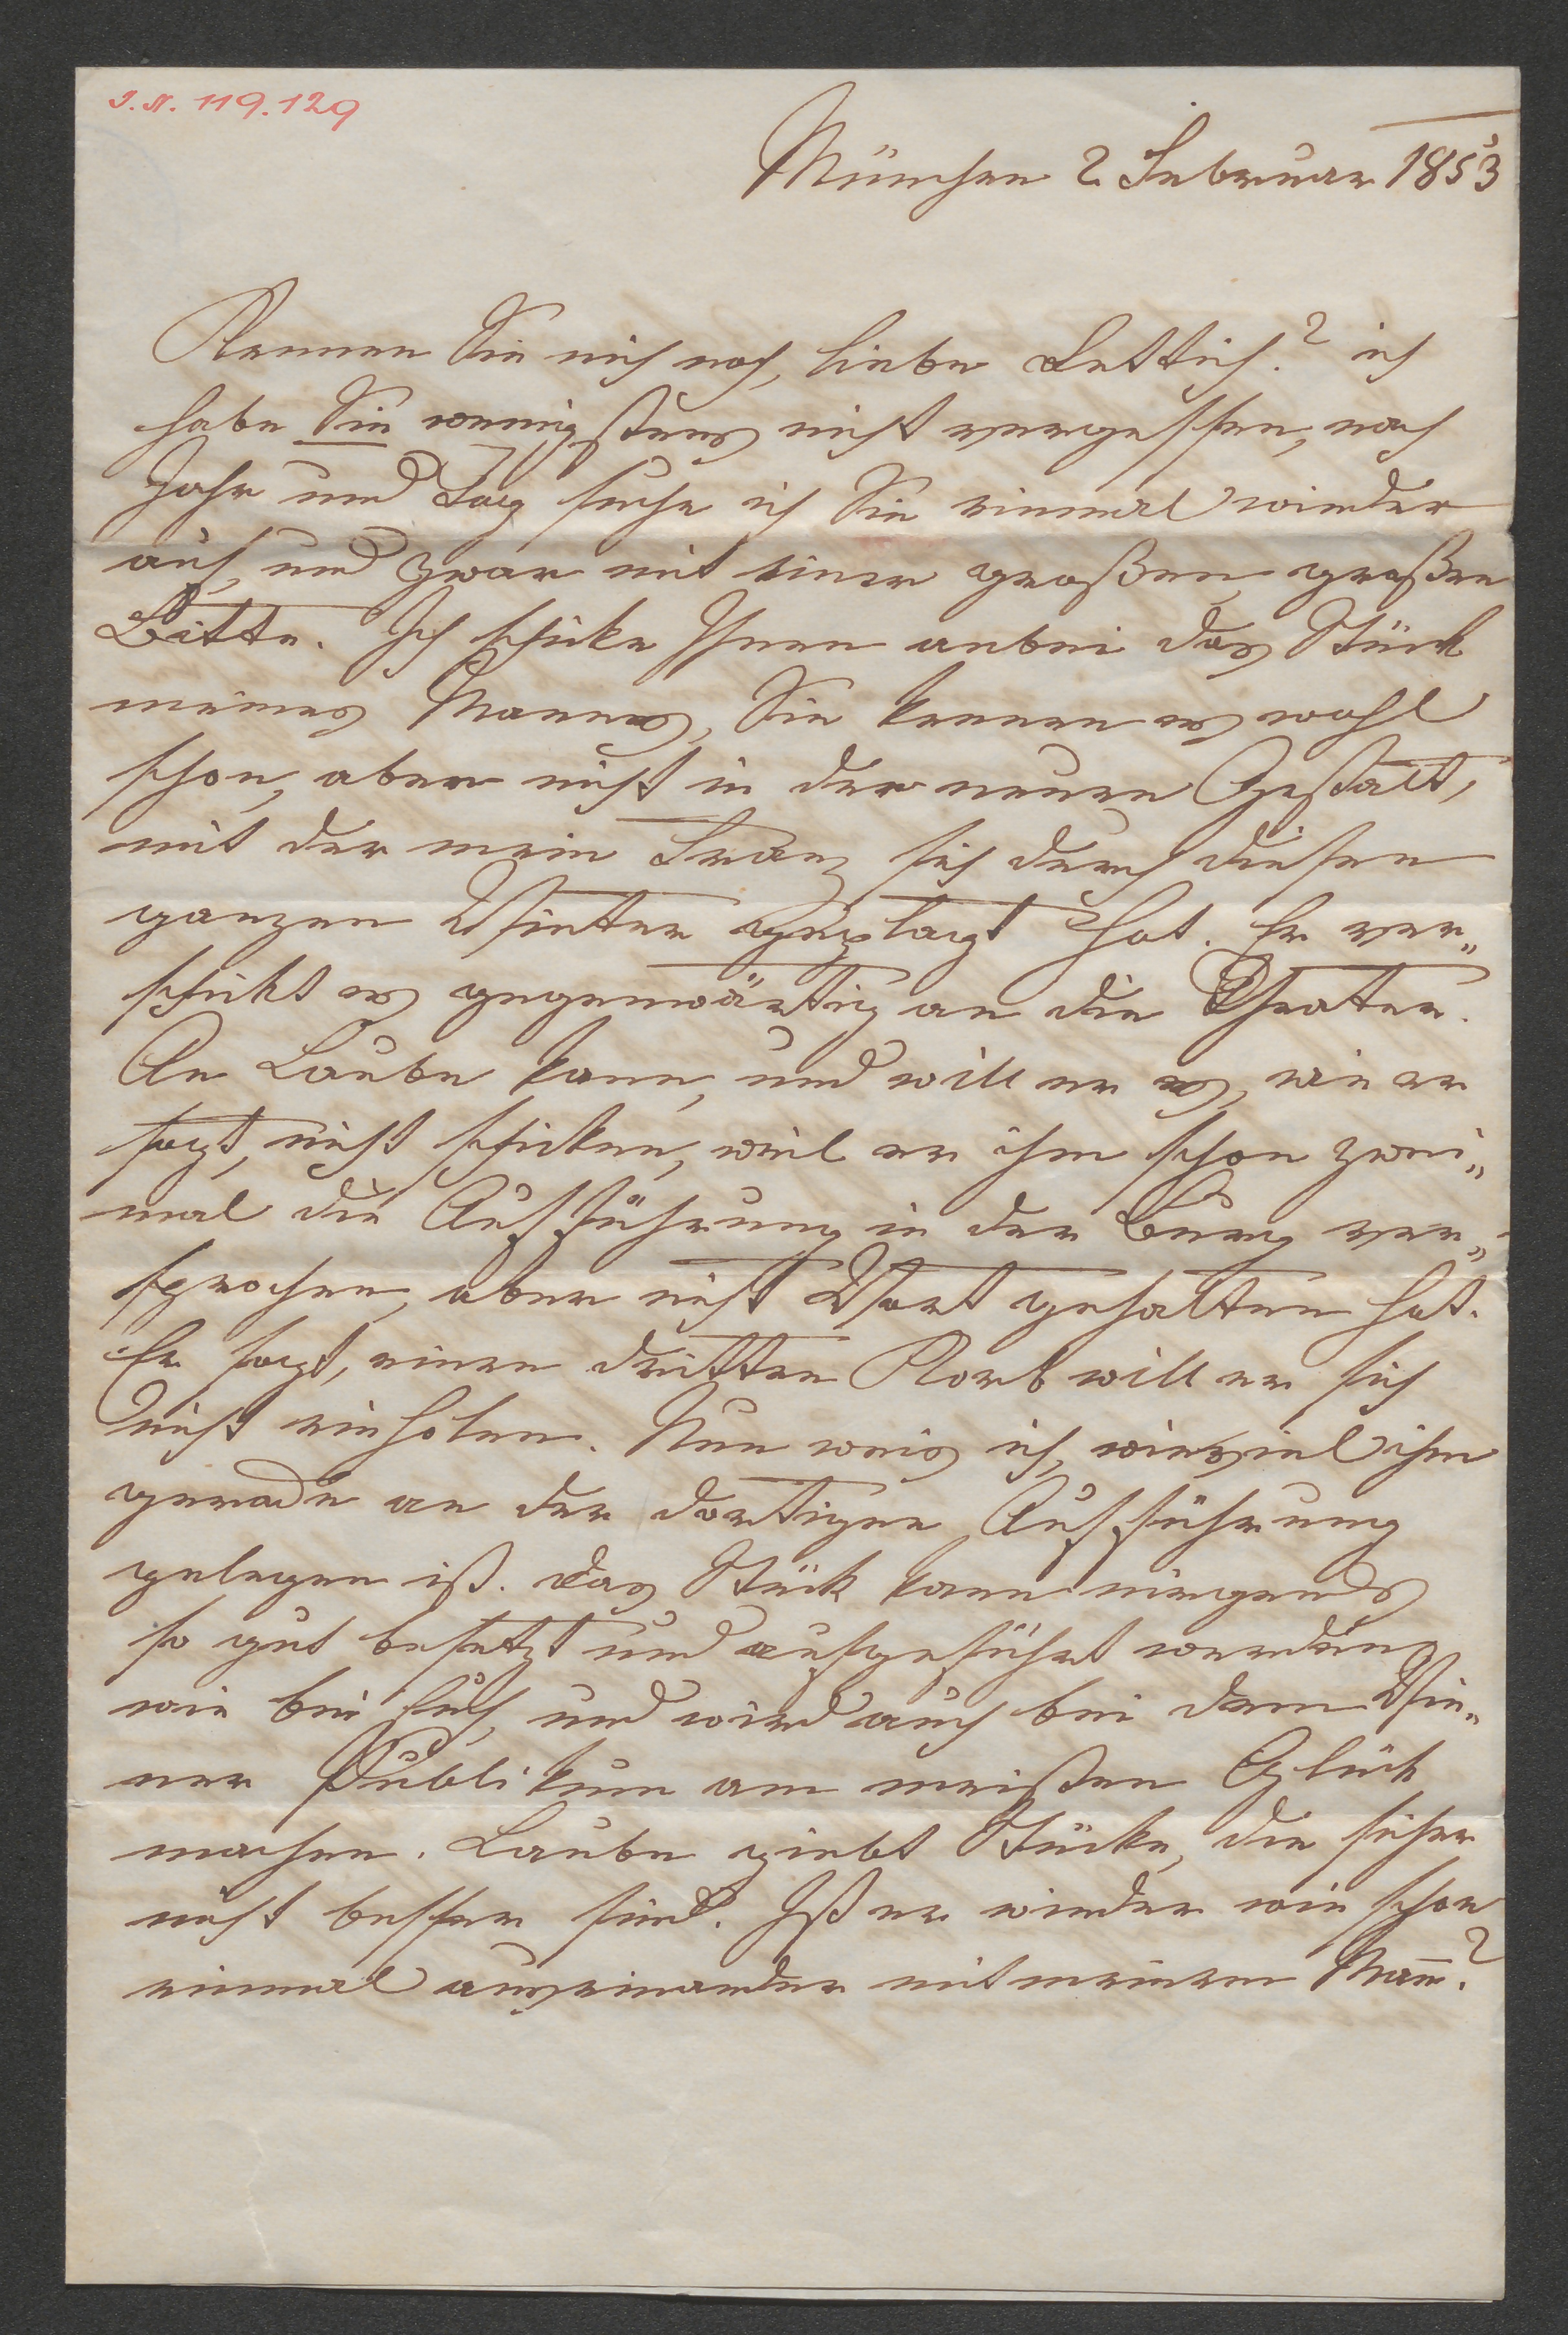 I. N. 119.129
München 2 Februar 1853
Kennen Sie mich noch, liebe Rettich? ich
habe Sie wenigstens nicht vergessen, nach
Jahr und Tag suche ich Sie einmal wieder
auf, und zwar mit einer großen, großen
Bitte. Ich schicke Ihnen anbei das Stück
meines Mannes, Sie kennen es wohl
schon, aber nicht in der neuen Gestalt,
mit der mein Franz sich durch diesen
ganzen Winter geplagt hat. Er ver„
schickt es gegenwärtig an die Theater.
An Laube kann, und will er es, wie er
sagt, nicht schicken, weil er ihm schon zwei„
mal die Aufführung in der Burg ver„
sprochen, aber nicht Wort gehalten hat.
Er sagt, einen dritten Korb will er sich
nicht einholen. Nun weis ich, wieviel ihm
gerade an der dortigen Aufführung
gelegen ist. Das Stück kann nirgends
so gut besetzt und aufgeführt werden,
wie bei Euch, und wird auch bei dem Wie„
ner Publikum am meisten Glück
machen. Laube giebt Stücke, die sicher
nicht besser sind. Ist er wieder wie schon
einmal auseinander mit meinem Mann?